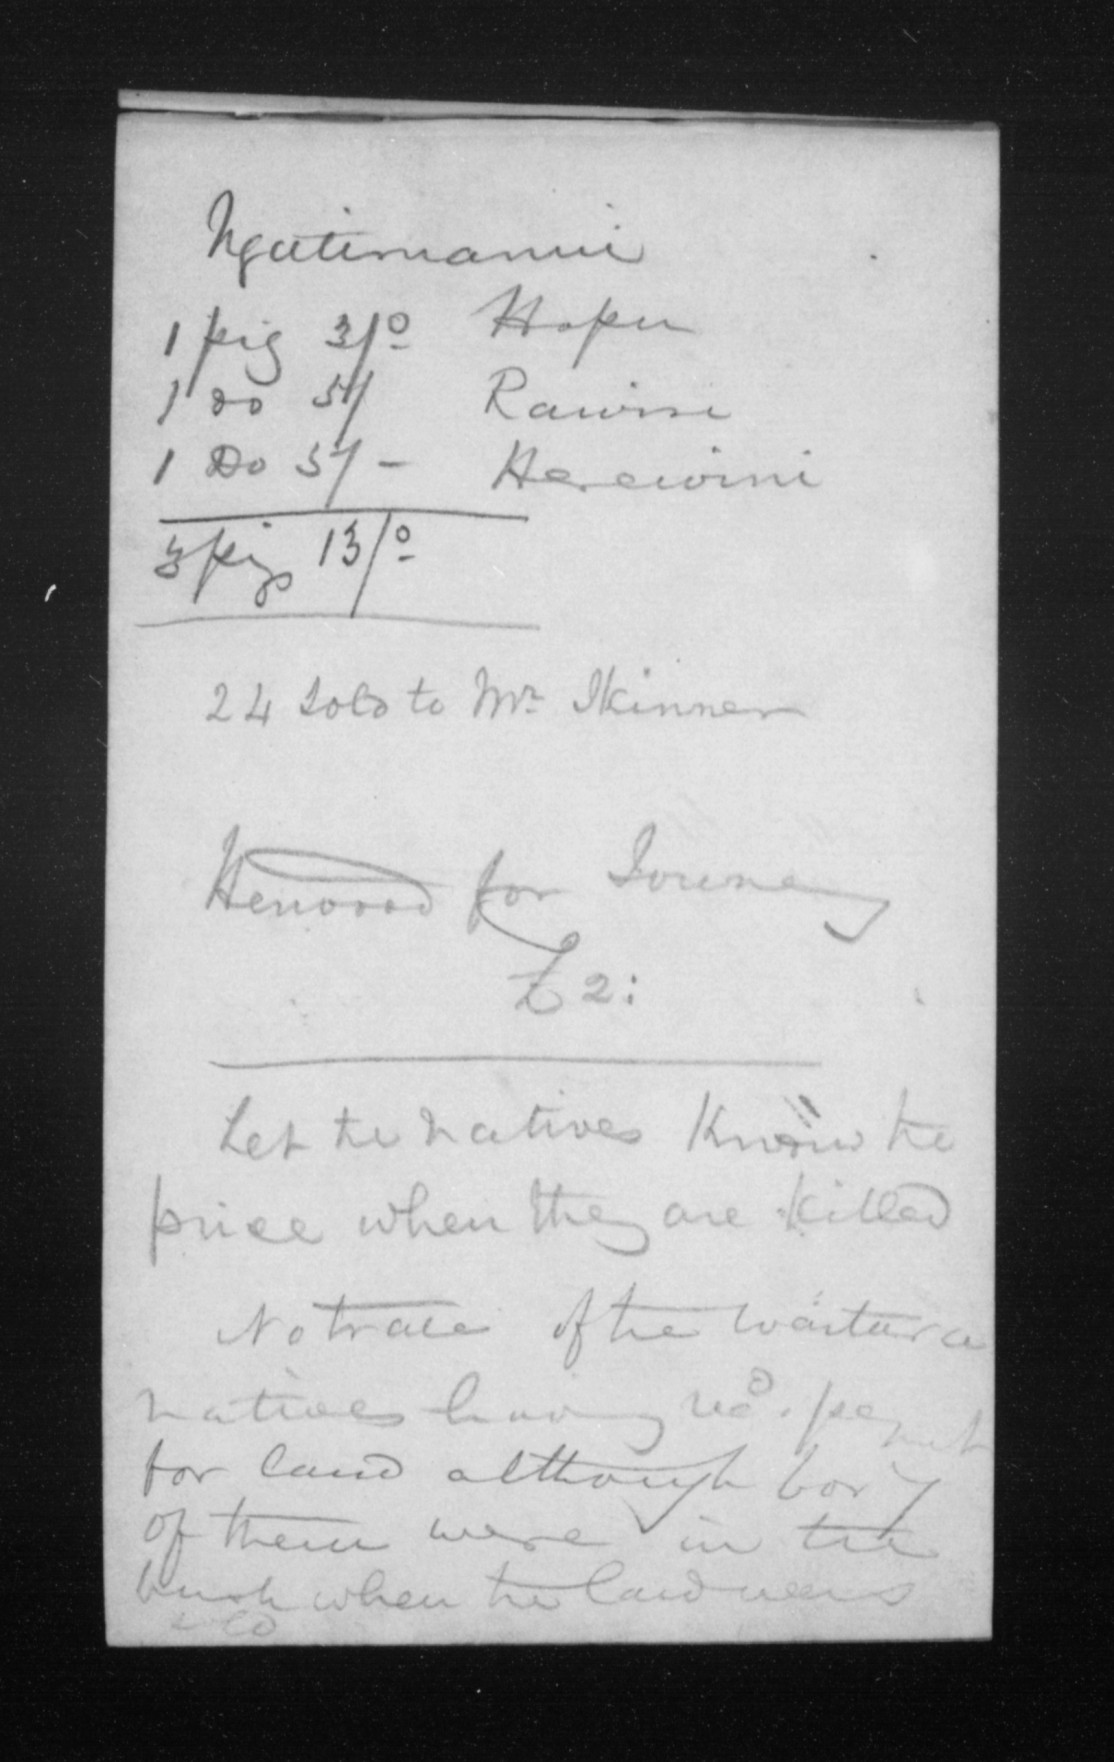 Ngatimanui
1 pig 3/0 Hopu
1 Do 5/ Rawiri
1 Do 5/- Herewini
3 pigs 13/0
24 sold to Mr Skinner
Henwood for
£2:
Let the natives Know the
price when they are Killed
No trace of the Waitara
natives having recd. paymt
for land although
of them were in the
bush when the land was
sold